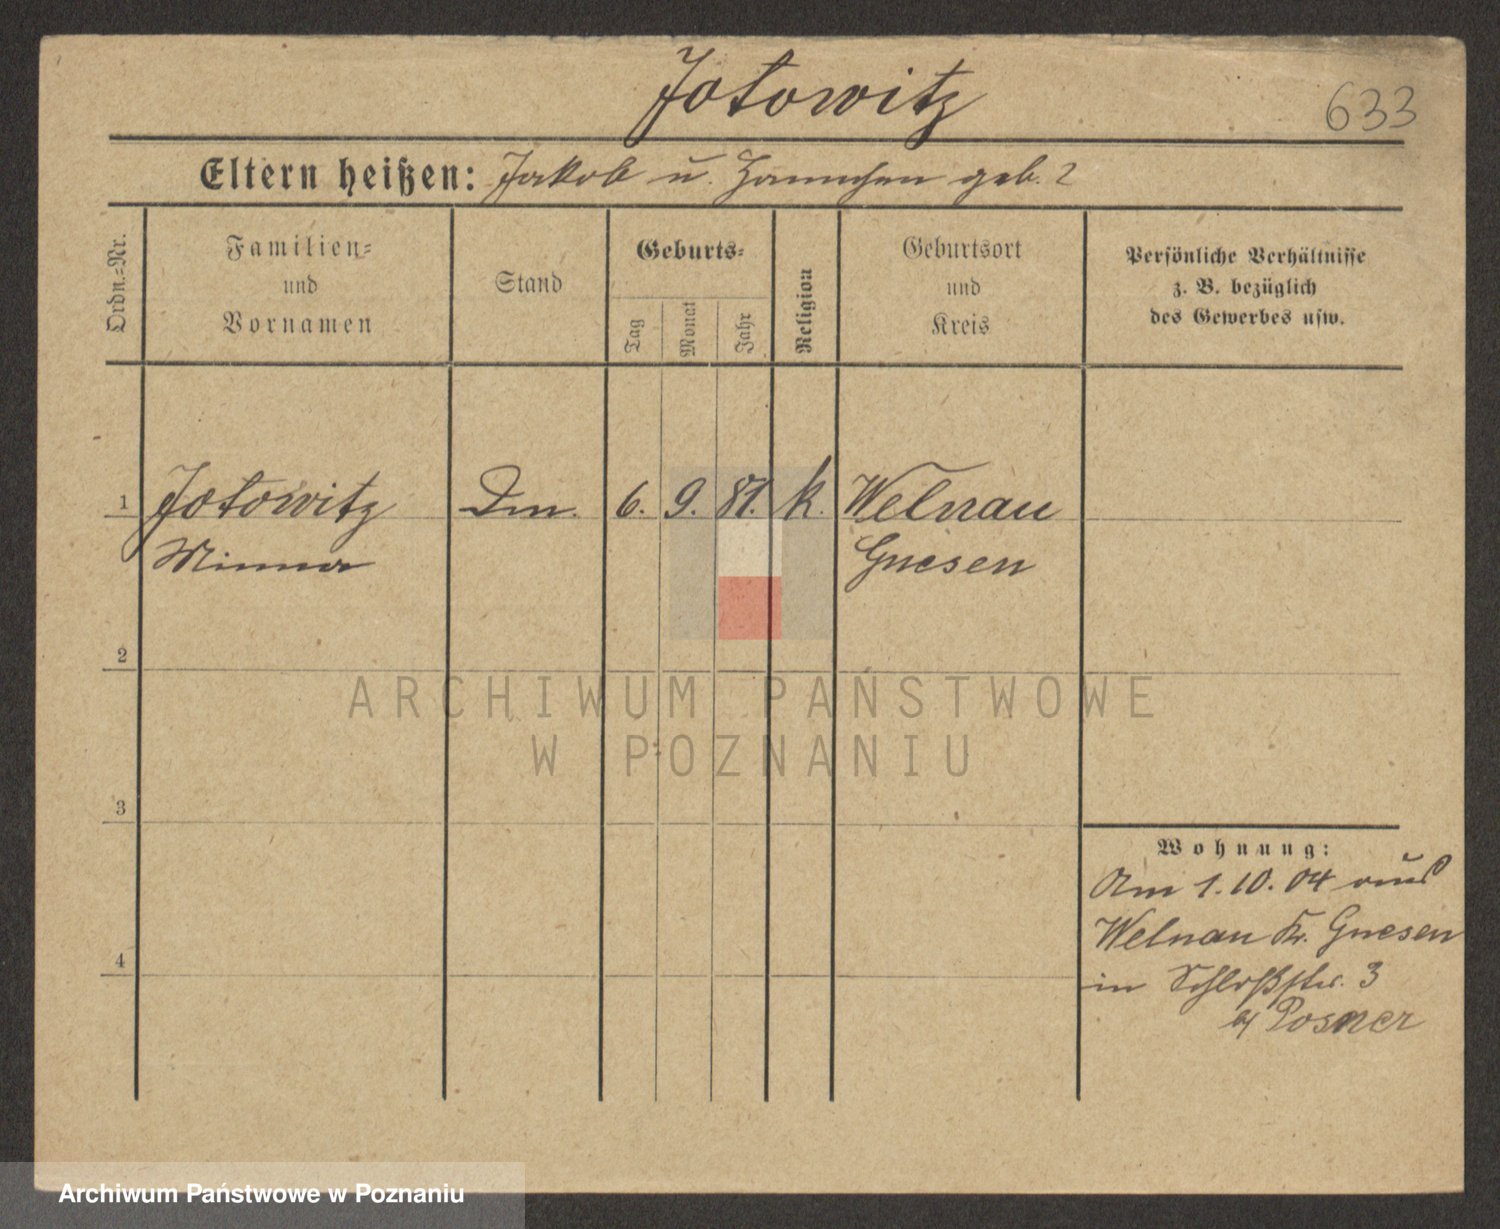 Jotowitz
633
Eltern heißen: Jakob u. Hannchen geb. ?
Ordn.-Nr.
Familien-
und
Vornamen
Stand
Geburts-
Tag
Monat
Jahr
Religion
Geburtsort
und
Kreis
Persönliche Verhältnisse
z. B. bezüglich
des Gewerbes usw.
1 Jotowitz Dm. 6. 9. 81. k. Welnau
Minna Gnesen
2
3
4
Wohnung:
Am 1.10.04 aus
Welnau Kr. Gnesen
in Schloßstr. 3
Posner
ARCHIWUM PAŃSTWOWE
W POZNANIU
Archiwum Państwowe w Poznaniu